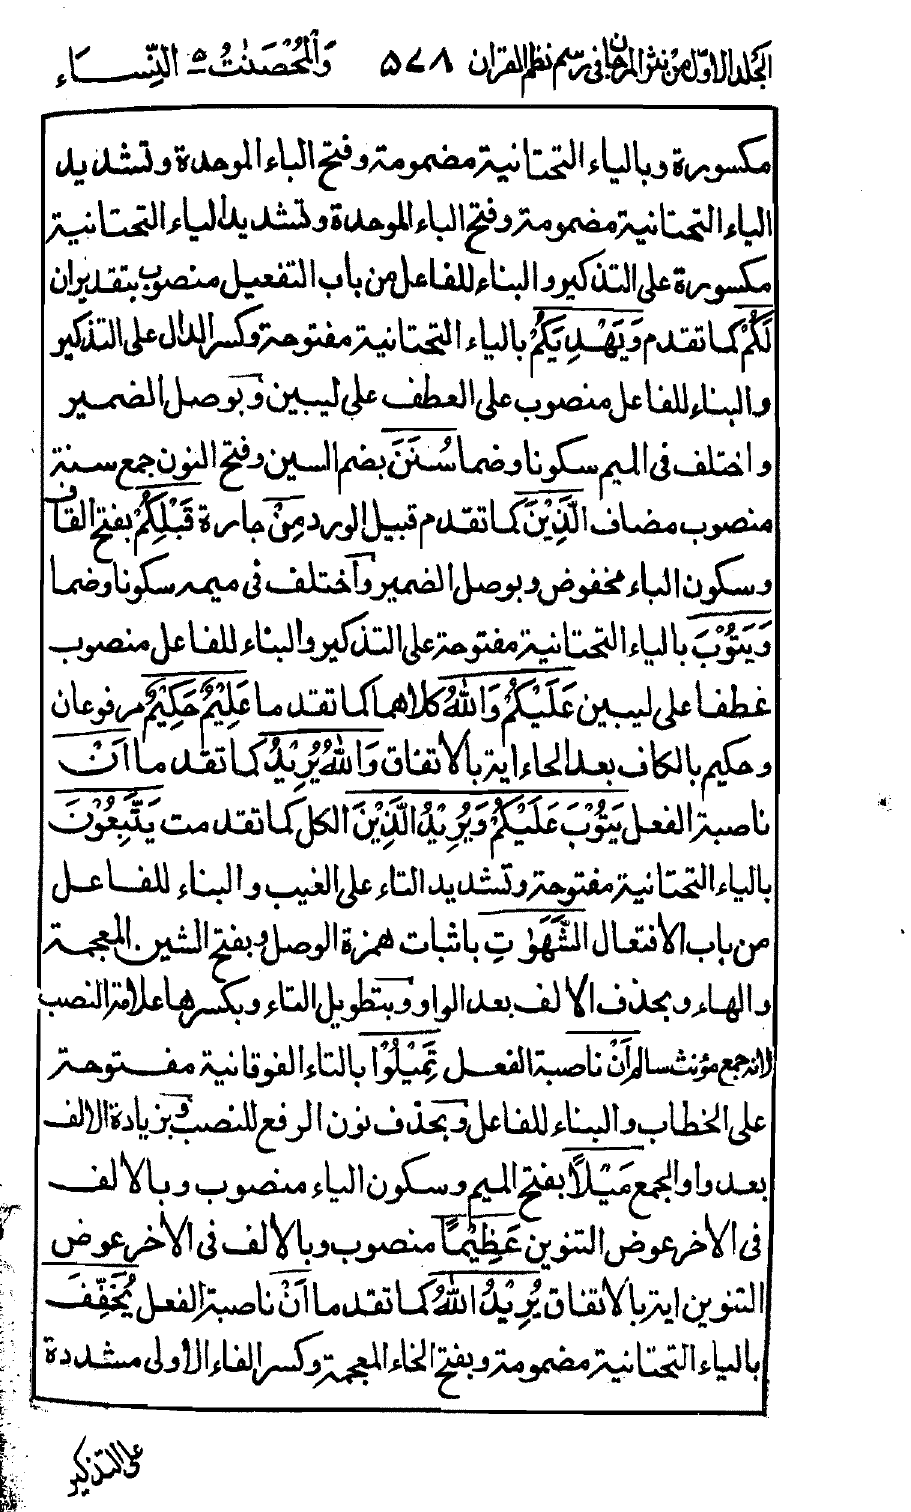 الجلد الاول من نثر المرجان فى رسم نظم القران ٥٧٨ وَالْمُحْصَنٰتُ ٥ النِّسَاء
مكسورة وبالياء التحتانية مضمومة وفتح الباء الموحدة وتشديد
الياء التحتانية مضمومة وفتح الباء الموحدة وتشديد الياء التحتانية
مكسورة على التذكير والبناء للفاعل من باب التفعيل منصوب بتقدير ان
لَكُمْ كما تقدم وَيَهْدِيَكُمْ بالياء التحتانية مفتوحة وكسر الدال على التذكير
والبناء للفاعل منصوب على العطف على ليبين وبوصل الضمير
واختلف فى الميم سكونا وضما سُنَنَ بضم السين وفتح النون جمع سنة
منصوب مضاف الَّذِيْنَ كما تقدم قبيل الورد مِنْ جارة قَبْلِكُمْ بفتح القاف
وسكون الباء مخفوض وبوصل الضمير واختلف فى ميمه سكونا وضما
وَيَتُوْبَ بالياء التحتانية مفتوحة على التذكير والبناء للفاعل منصوب
عطفا على ليبين عَلَيْكُمْ وَاللهُ كلاهما كما تقدما عَلِيْمٌ حَكِيْمٌ مرفوعان
وحكيم بالكاف بعد الحاء اية بالاتفاق وَاللهُ يُرِيْدُ كما تقدما اَنْ
ناصبة الفعل يَتُوْبَ عَلَيْكُمْ وَيُرِيْدُ الَّذِيْنَ الكل كما تقدمت يَتَّبِعُوْنَ
بالياء التحتانية مفتوحة وتشديد التاء على الغيب والبناء للفاعل
من باب الافتعال الشَّهَوٰتِ باثبات همزة الوصل وبفتح الشين المعجمة
والهاء وبحذف الالف بعد الواو وبتطويل التاء وبكسرها علامة النصب
لانه جمع مؤنث سالم اَنْ ناصبة الفعل تَمِيْلُوْا بالتاء الفوقانية مفتوحة
على الخطاب والبناء للفاعل وبحذف نون الرفع للنصب وبزيادة الالف
بعد واو الجمع مَيْلاً بفتح الميم وسكون الياء منصوب وبالالف
فى الاخر عوض التنوين عَظِيْمًا منصوب وبالالف فى الاخر عوض
التنوين اية بالاتفاق يُرِيْدُ اللهُ كما تقدما اَنْ ناصبة الفعل يُخَفِّفَ
بالياء التحتانية مضمومة وبفتح الخاء المعجمة وكسر الفاء الاولى مشددة
على التذكير